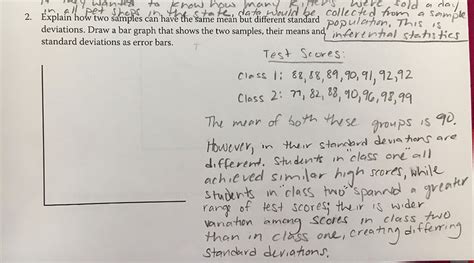 wanted to know how many kittens were sold a day
in all pet shops in the state, data would be collected from a sample
population. This is
inferential statistics
2. Explain how two samples can have the same mean but different standard
deviations. Draw a bar graph that shows the two samples, their means and
standard deviations as error bars.
Test Scores:
Class 1: 88, 88, 89, 90, 91, 92, 92
Class 2: 77, 82, 88, 90, 96, 98, 99
The mean of both these groups is 90.
However, in their standard deviations are
different. Students in "class one" all
achieved similar high scores, while
students in "class two" spanned a greater
range of test scores; their is wider
variation among scores in class two
than in class one, creating differring
standard deviations.